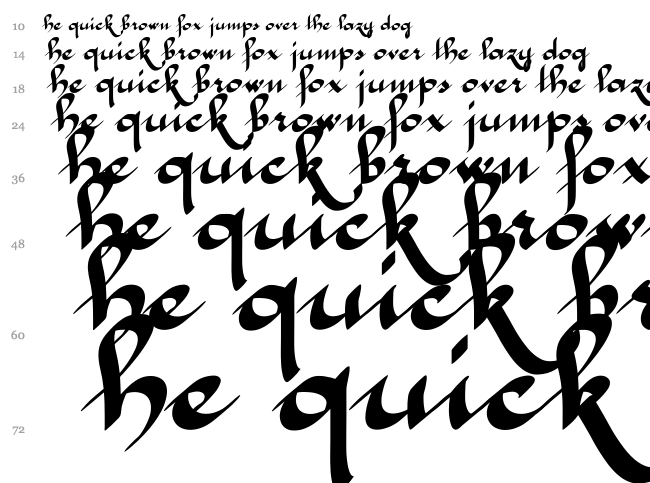 10 he quick brown fox jumps over the lazy dog
14 he quick brown fox jumps over the lazy dog
18 he quick brown fox jumps over the laz
24 he quick brown fox jumps ov
36 he quick brown fox
48 he quick brow
60 he quick br
72 he quick